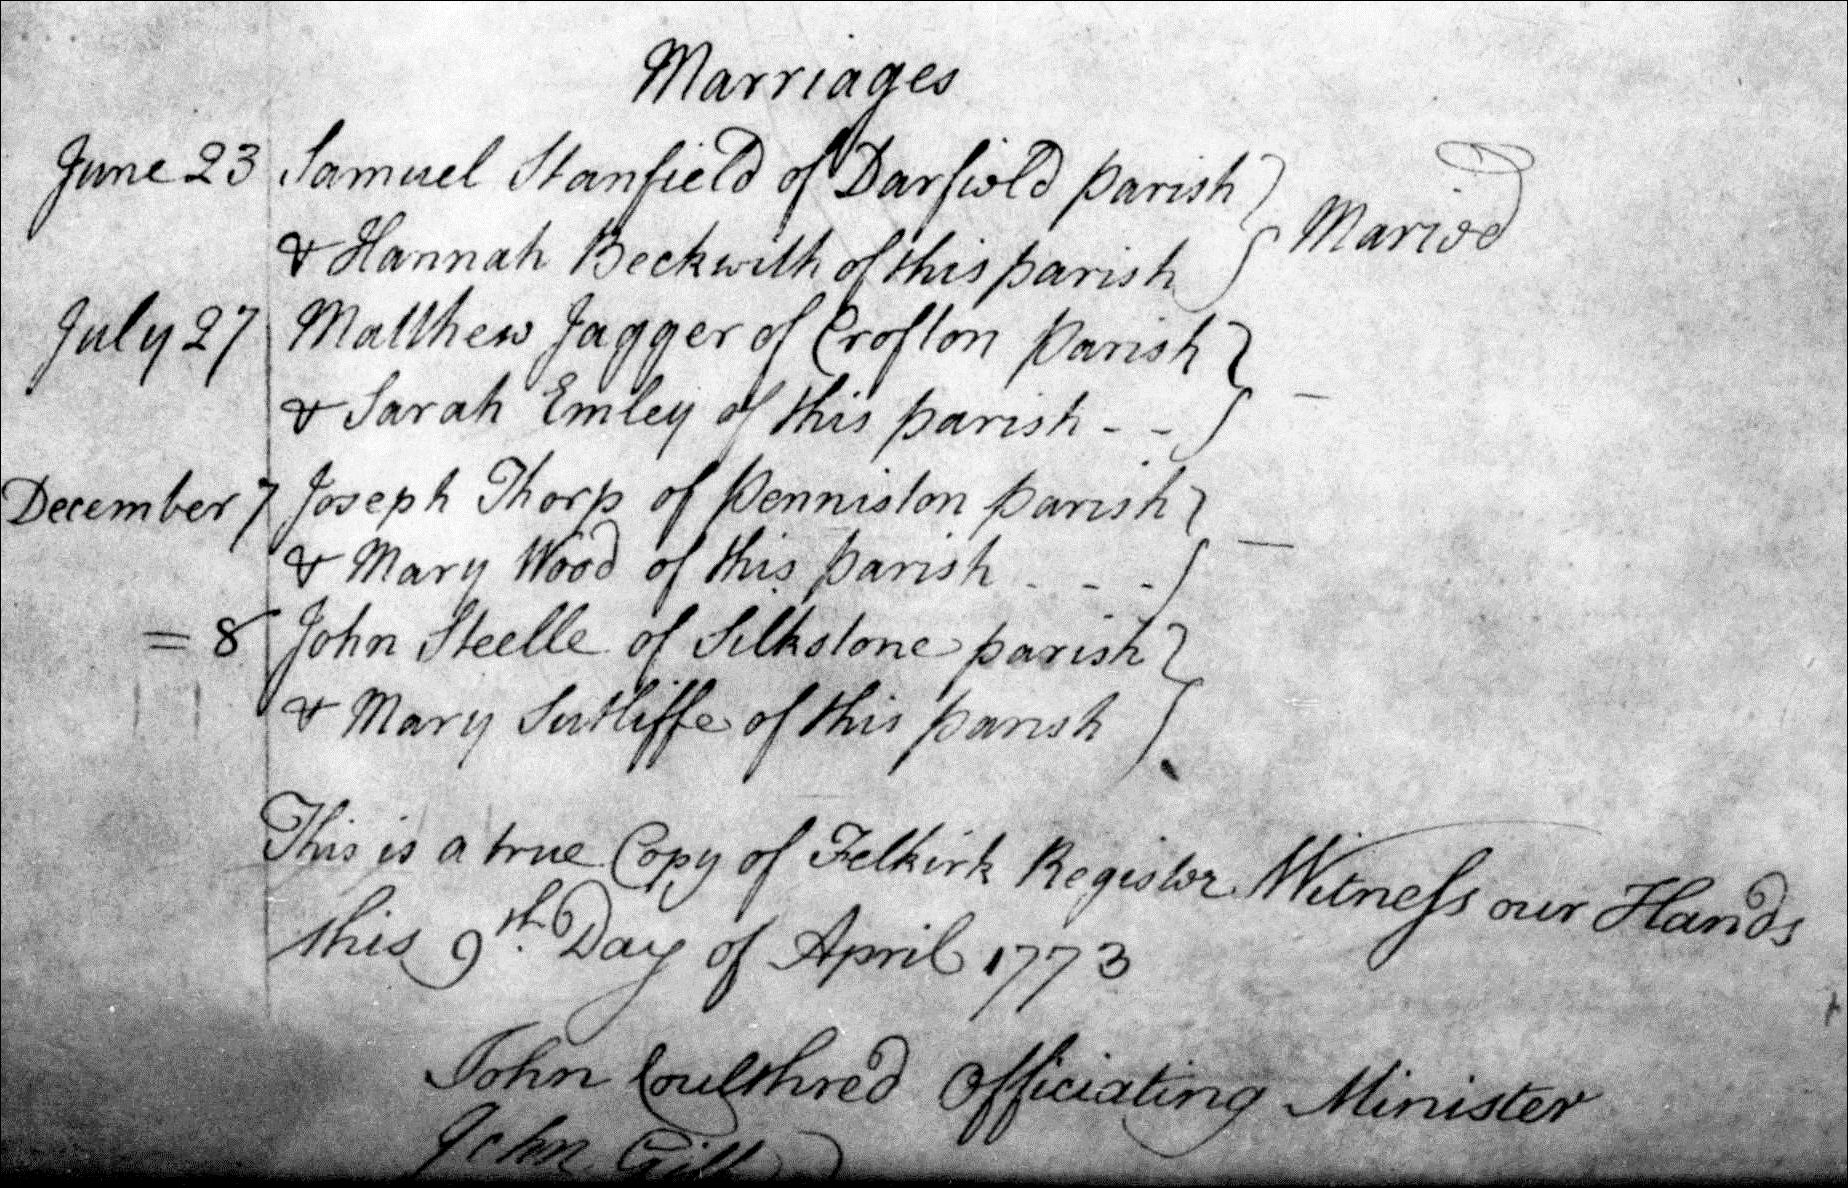 Marriages
June 23 Samuel Stanfield of Darfield parish
& Hannah Beckwith of this parish Maried
July 27 Matthew Jagger of Crofton Parish
& Sarah Emley of this parish - - -
December 7 Joseph Thorp of Penniston parish
& Mary Wood of this parish - - - -
= 8 John Steelle of Silkstone parish
& Mary Sutliffe of this parish
This is a true Copy of Felkirk Register Witness our Hands
this 9th Day of April 1773
John Coulthred Officiating Minister
John Gill